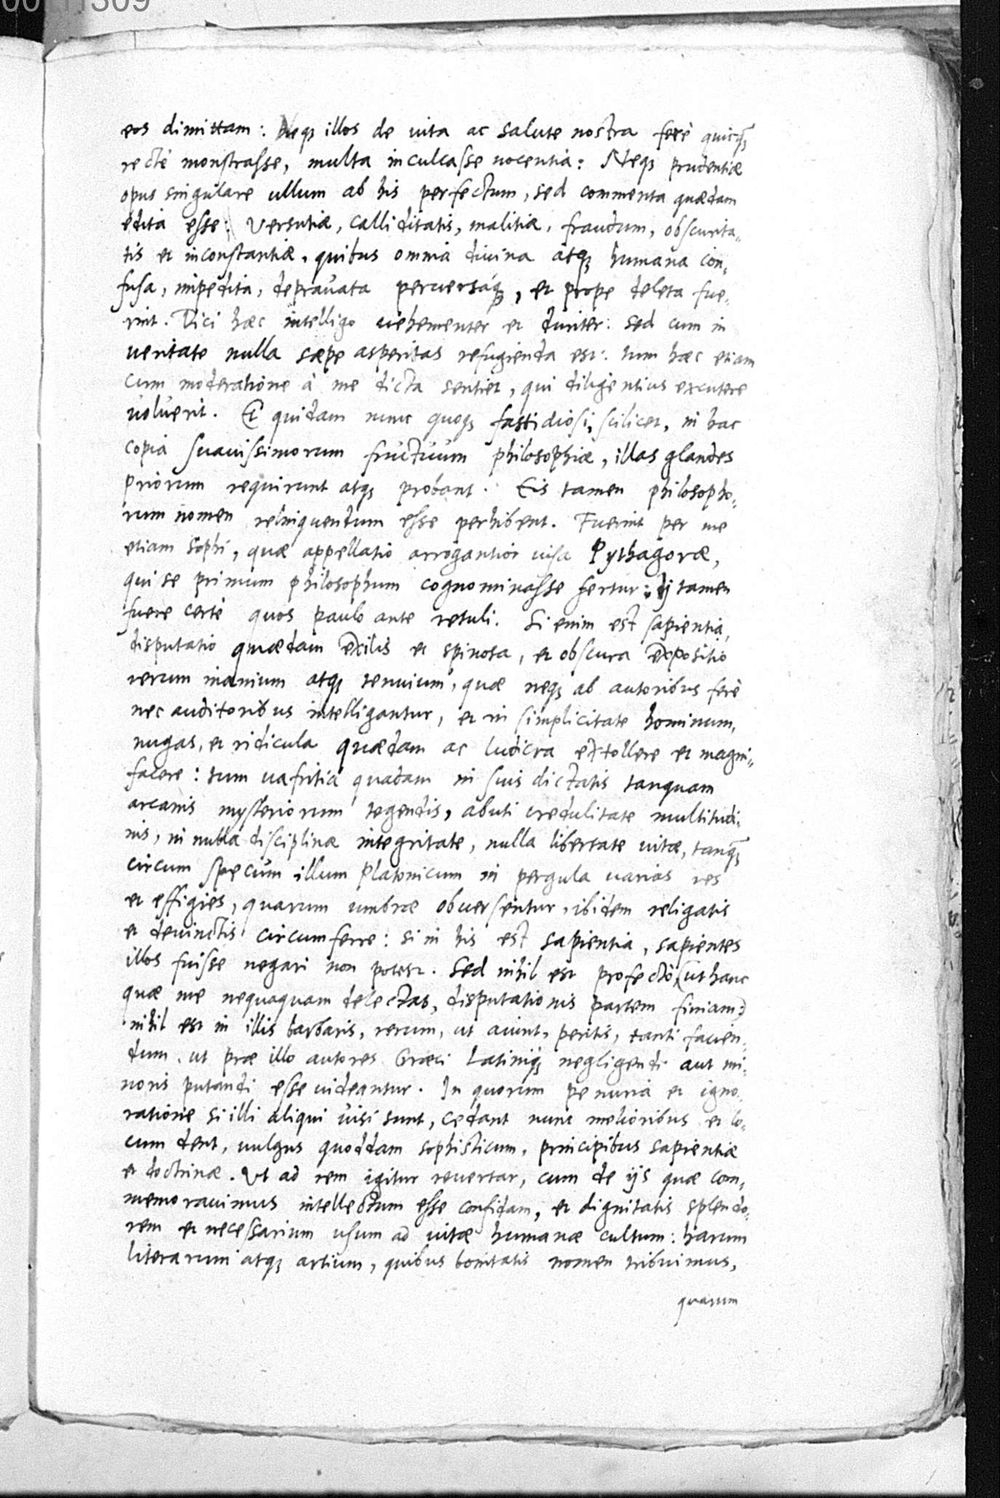 00011309
eos dimittam: Neqȝ illos de uita ac salute nostra ferè quicq̃
rectè monstrasse, multa inculcasse nocentia: Neqȝ prudentiæ
opus singulare ullum ab his perfectum, sed commenta quædam
edita esse: versutiæ, calliditatis, malitiæ, fraudum, obscurita-
tis et inconstantiæ, quibus omnia diuina atqȝ humana con-
fusa, impedita, deprauata peruersáqȝ, et prope deleta fue-
rint. Dici hæc intelligo uehementer et duriter: sed cum in
ueritate nulla sæpe asperitas refugienda est: tum hæc etiam
cum moderatione à me dicta sentiet, qui diligentius excutere
uoluerit. Et quidam nunc quoqȝ fastidiosi, scilicet, in hac
copia suauissimorum fructuum philosophiæ, illas glandes
priorum requirunt atqȝ probant. Eis tamen philosopho-
rum nomen relinquendum esse perhibent. Fuerint per me
etiam Sophi, quæ appellatio arrogantior uisa Pythagoræ,
qui se primum philosophum cognominasse fertur: ij tamen
fuere certè quos paulo ante retuli. Si enim est sapientia,
disputatio quædam exilis et spinosa, et obscura expositio
rerum inanium atqȝ tenuium, quæ neqȝ ab autoribus ferè
nec auditoribus intelligantur, et in simplicitate hominum,
nugas, et ridicula quædam ac ludicra extollere et magni-
facere: tum uafritia quadam in suis dictatis tanquam
arcanis mysteriorum tegendis, abuti credulitate multitudi-
nis, in nulla disciplinæ integritate, nulla libertate uitæ, tanq̃
circum specum illum Platonicum in pergula uarias res
et effigies, quarum umbræ obuersentur, ibidem religatis
et deuinctis circumferre: si in his est sapientia, sapientes
illos fuisse negari non potest. Sed nihil est profectò, (ut hanc
quæ me nequaquam delectat, disputationis partem finiam)
nihil est in illis barbaris, rerum, ut aiunt, peritis, tanti facien-
dum, ut præ illo autores Græci Latiniqȝ negligendi aut mi-
noris putandi esse uideantur. In quorum penuria et igno-
ratione si illi aliqui uisi sunt, cedant nunc melioribus et lo-
cum dent, uulgus quoddam sophisticum, principibus sapientiæ
et doctrinæ. Vt ad rem igitur reuertar, cum de ijs quæ com-
memorauimus intellectum esse confidam, et dignitatis splendo-
rem et necessarium usum ad uitæ humanæ cultum: harum
literarum atqȝ artium, quibus bonitatis nomen tribuimus,
quarum